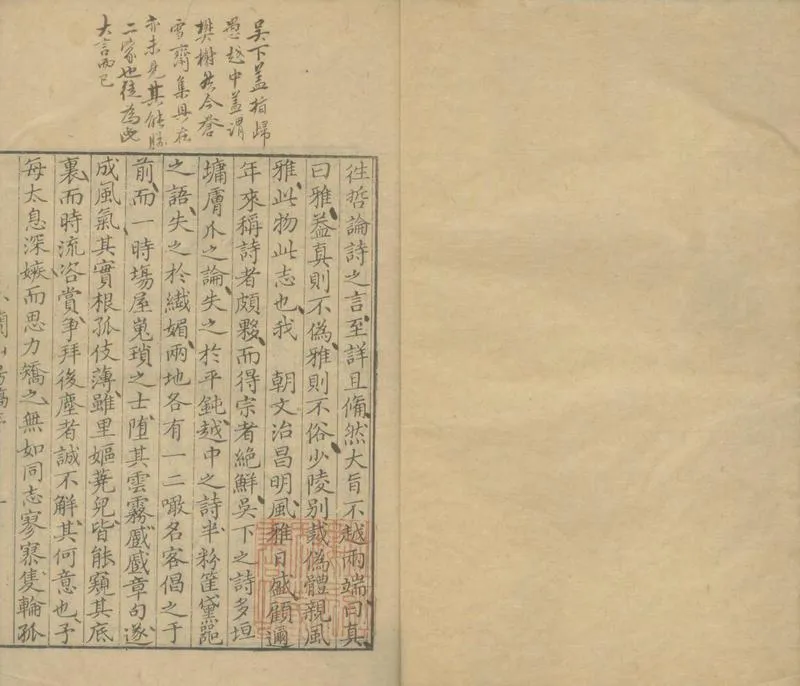 吳下蓋指歸
愚越中蓋謂
樊榭然今
雪齋集具在
亦未見其能勝
二家也徒為此
大言而已
徃哲論詩之言至詳且備然大旨不越兩端曰真
曰雅益真則不偽雅則不俗少陵別裁偽體親風
雅此物此志也我　朝文治昌明風雅日盛顧邇
年來稱詩者頗夥而得宗者絕鮮吳下之詩多垣
墉膚爪之論失之於平鈍越中之詩半粉筐黛
之語失之於纎媚兩地各有一二噉名客倡之于
前而一時場屋嵬瑣之士墮其雲霧戲戲章句遂
成風氣其實根孤伎薄雖里嫗蕘兒皆能窺其底
裏而時流咨賞爭拜後塵者誠不解其何意也予
每太息深嫉而思力矯之無如同志寥寥隻輪孤